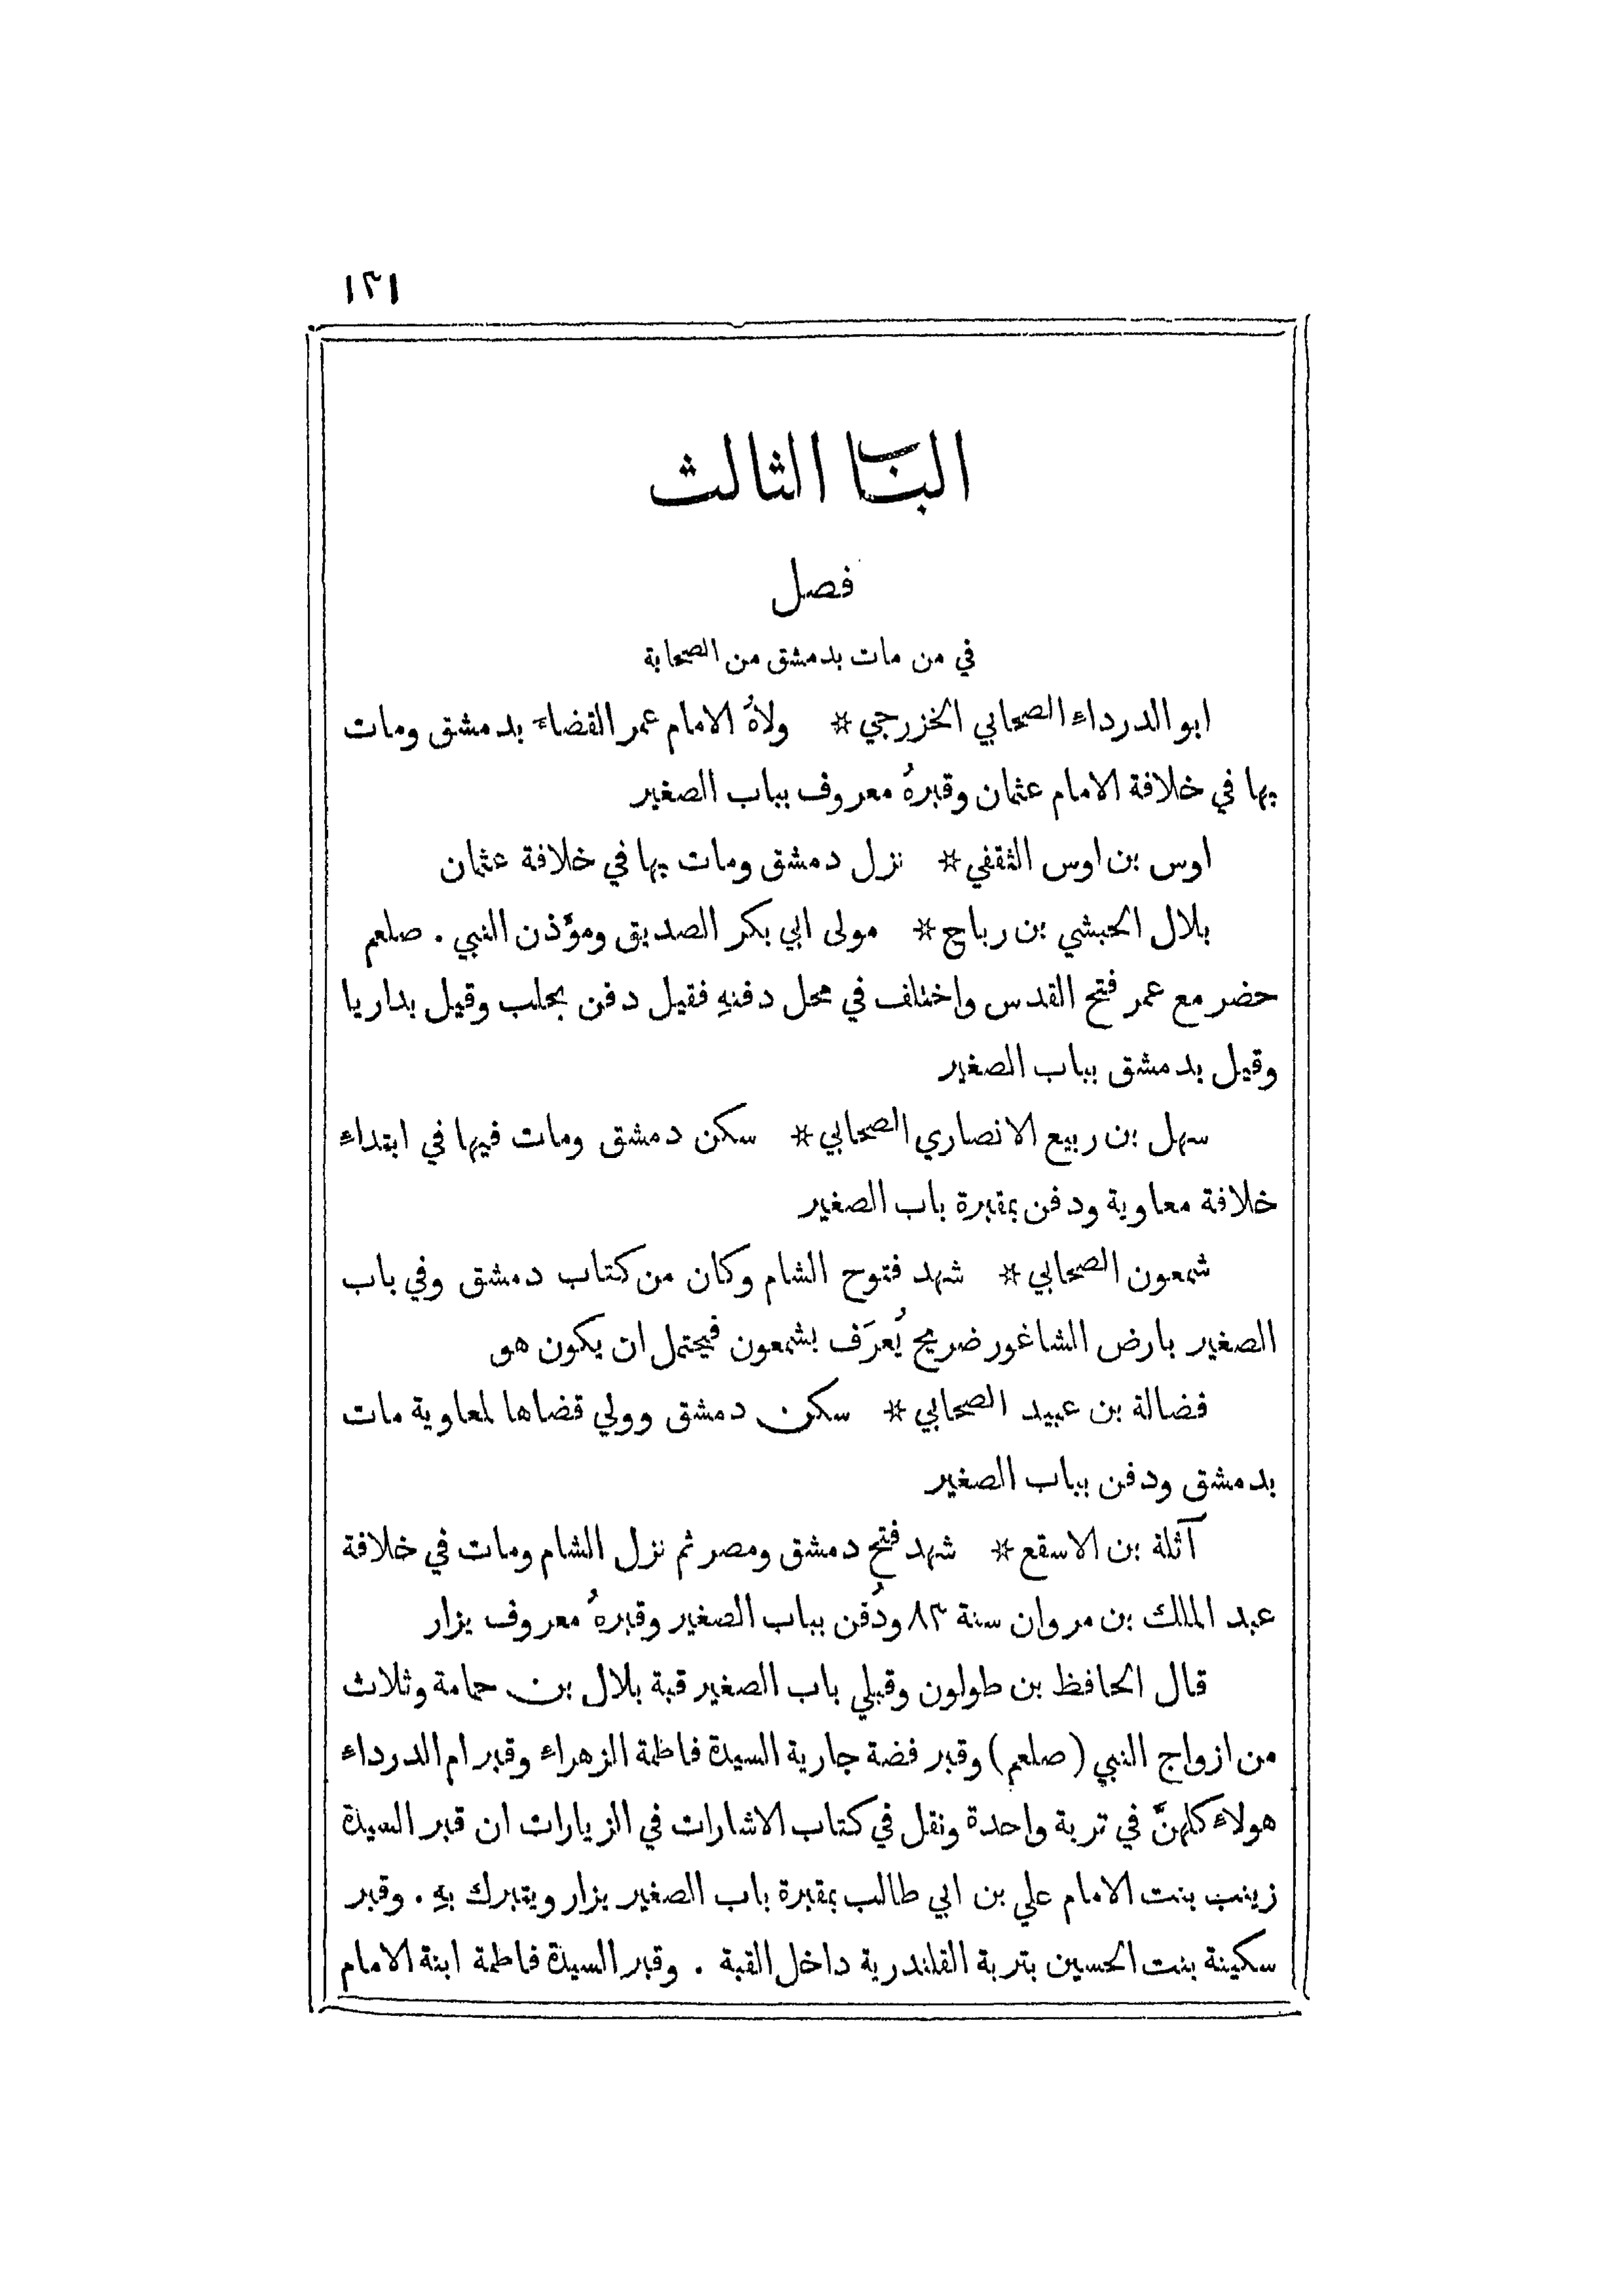 ١٣١
الباب الثالث
فصل
في من مات بدمشق من الصحابة
ابو الدرداء الصحابي الخزرجي * ولاهُ الامام عمر القضاء بدمشق ومات
بها في خلافة الامام عثمان وقبرهُ معروف بباب الصغير
اوس بن اوس الثقفي * نزل دمشق ومات بها في خلافة عثمان
بلال الحبشي بن رباح * مولى ابي بكر الصديق ومؤذن النبي . صلعم
حضر مع عمر فتح القدس واختلف في محل دفنهِ فقيل دفن بحلب وقيل بداريا
وقيل بدمشق بباب الصغير
سهل بن ربيع الانصاري الصحابي * سكن دمشق ومات فيها في ابتداء
خلافة معاوية ودفن بمقبرة باب الصغير
شمعون الصحابي * شهد فتوح الشام وكان من كتاب دمشق وفي باب
الصغير بارض الشاغور ضريح يُعرَف بشمعون فيحتمل ان يكون هو
فضالة بن عبيد الصحابي * سكن دمشق وولي قضاها لمعاوية مات
بدمشق ودفن بباب الصغير
آثلة بن الاسقع * شهد فتح دمشق ومصر ثم نزل الشام ومات في خلافة
عبد الملك بن مروان سنة ٨٣ ودُفن بباب الصغير وقبرهُ معروف يزار
قال الحافظ بن طولون وقبلي باب الصغير قبة بلال بن حمامة وثلاث
من ازواج النبي (صلعم) وقبر فضة جارية السيدة فاطمة الزهراء وقبر ام الدرداء
هولاء كلهنَّ في تربة واحدة ونقل في كتاب الاشارات في الزيارات ان قبر السيدة
زينب بنت الامام علي بن ابي طالب بمقبرة باب الصغير يزار ويتبرك بهِ . وقبر
سكينة بنت الحسين بتربة القلندرية داخل القبة . وقبر السيدة فاطمة ابنة الامام